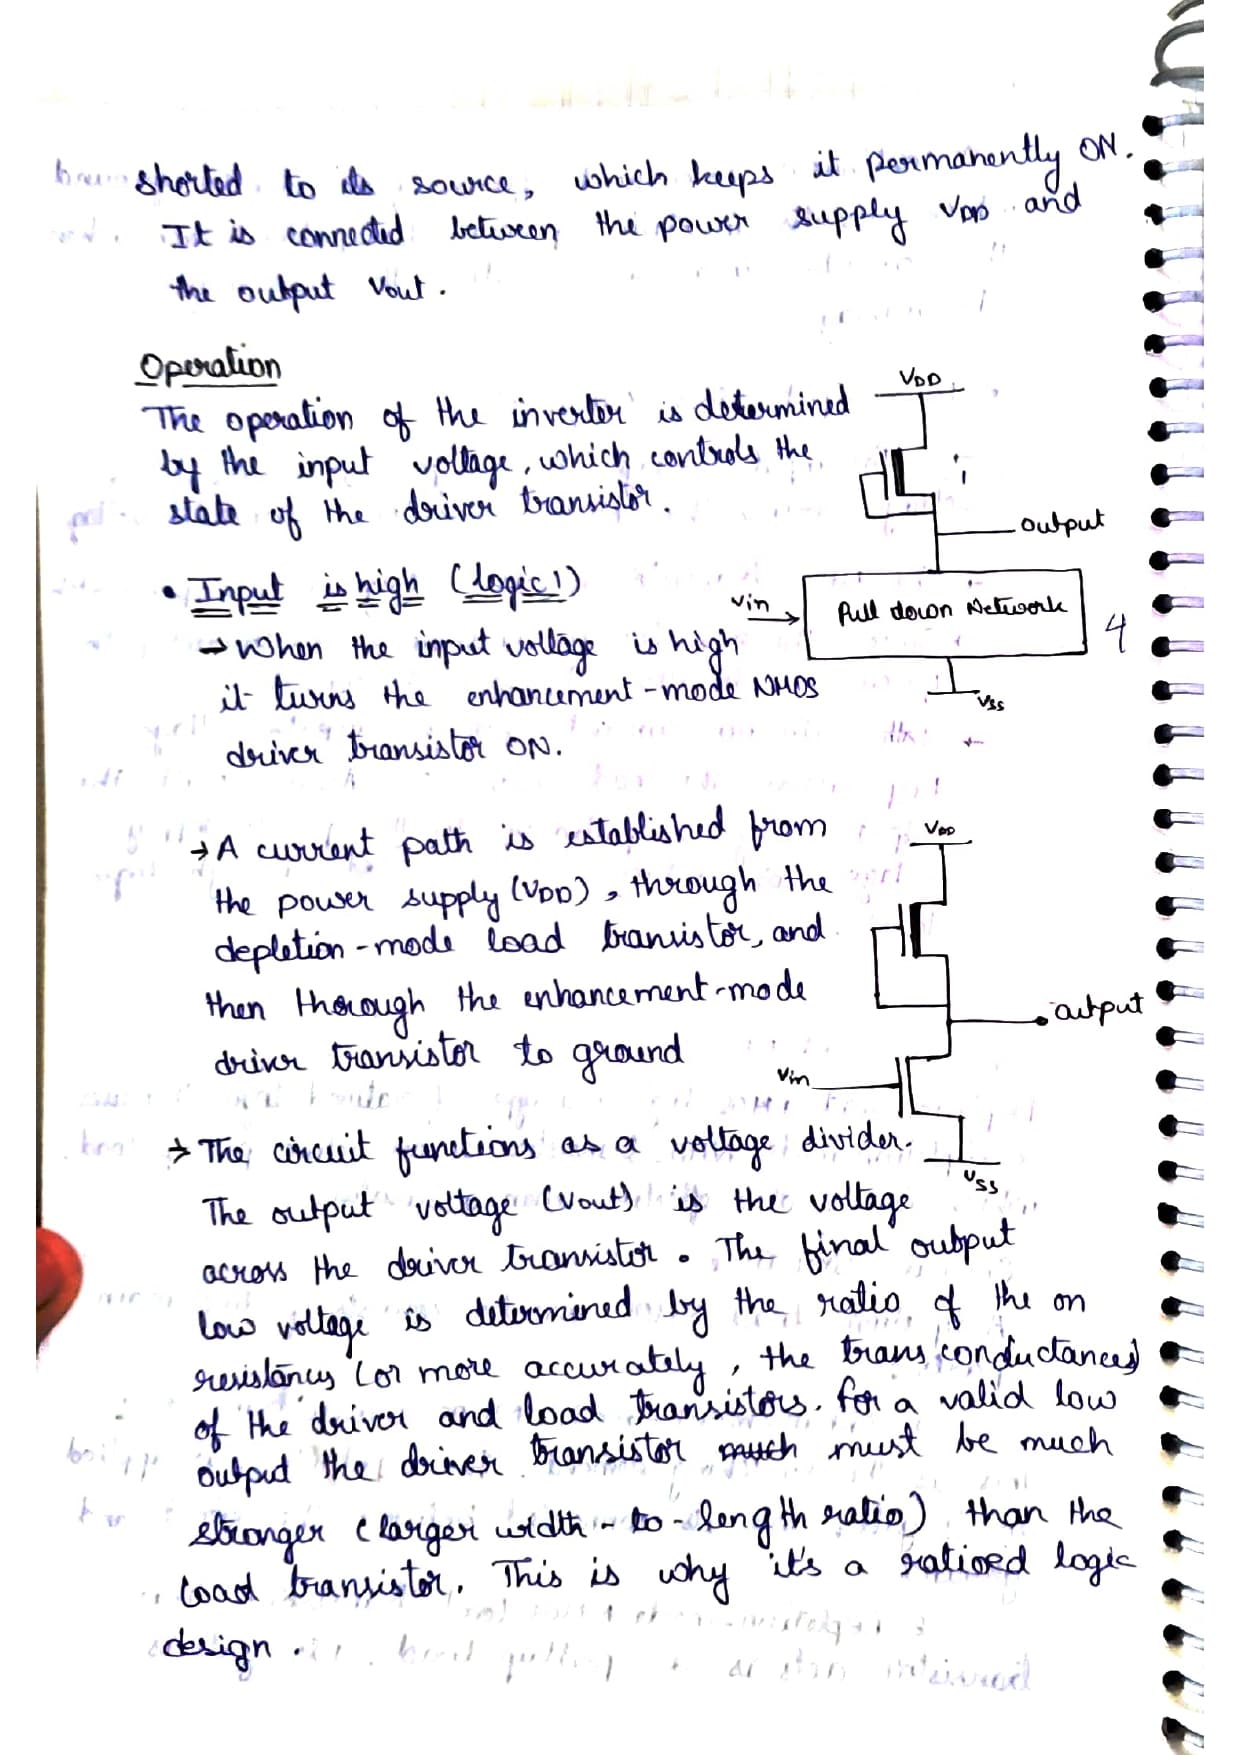 shorted to its source, which keeps it permanently ON.
It is connected between the power supply VDD and
the output Vout.
Operation
The operation of the inverter is determined
by the input voltage, which controls the
state of the driver transistor.
VDD
output
Vin
Pull down Network
4
VSS
• Input is high (logic 1)
→ When the input voltage is high
it turns the enhancement-mode NMOS
driver transistor ON.
→ A current path is established from
the power supply (VDD), through the
depletion-mode load transistor, and
then thorough the enhancement-mode
driver transistor to ground
VDD
output
Vin
VSS
→ The circuit functions as a voltage divider.
The output voltage (Vout) is the voltage
across the driver transistor. The final output
low voltage is determined by the ratio of the on
resistances (or more accurately, the trans conductances)
of the driver and load transistors. for a valid low
output the driver transistor much must be much
stronger (larger width-to-length ratio) than the
load transistor. This is why it's a ratioed logic
design.